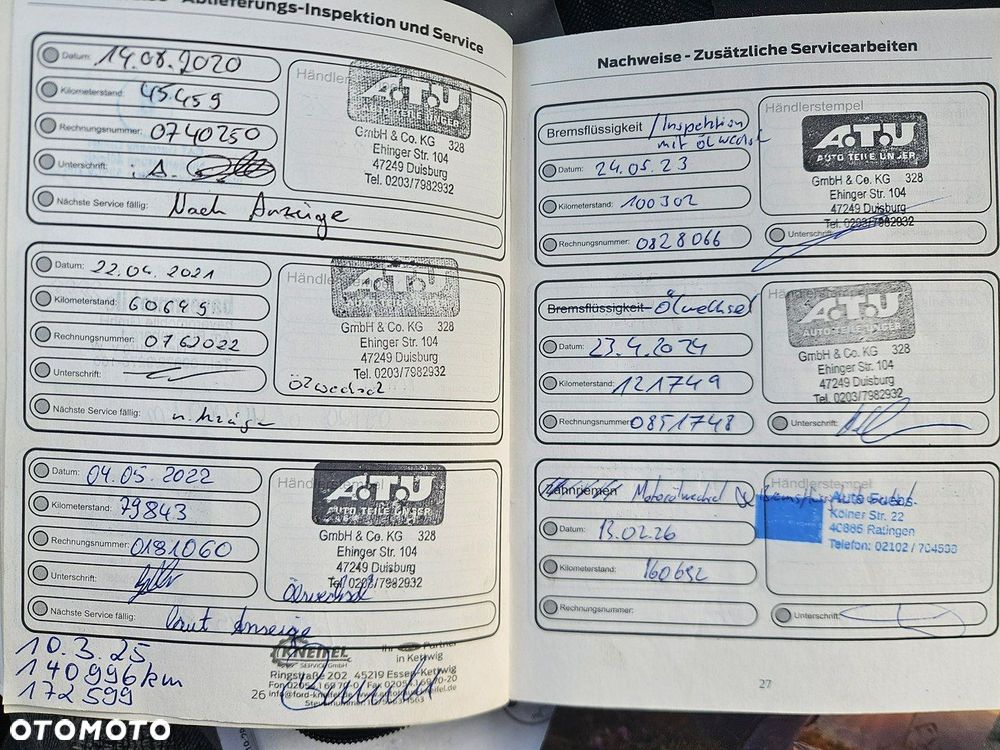 Ablieferungs-Inspektion und Service
Datum: 14.08.2020
Kilometerstand: 45.459
Rechnungsnummer: 0740250
Unterschrift: A.
Nächste Service fällig: Nach Anzeige
Händlerstempel
A.T.U
AUTO TEILE UNGER
GmbH & Co. KG 328
Ehinger Str. 104
47249 Duisburg
Tel. 0203/7982932
Datum: 22.04.2021
Kilometerstand: 60649
Rechnungsnummer: 0762022
Unterschrift:
Nächste Service fällig: n. Anzeige
Händlerstempel
A.T.U
GmbH & Co. KG 328
Ehinger Str. 104
47249 Duisburg
Tel. 0203/7982932
Ölwechsel
Datum: 04.05.2022
Kilometerstand: 79843
Rechnungsnummer: 0181060
Unterschrift:
Nächste Service fällig: laut Anzeige
Händlerstempel
A.T.U
AUTO TEILE UNGER
GmbH & Co. KG 328
Ehinger Str. 104
47249 Duisburg
Tel. 0203/7982932
Ölwechsel
10.3.25
140996 km
172599
KNEIFEL
SERVICE GMBH
Ihr Partner
in Kettwig
Ringstraße 202 45219 Essen-Kettwig
26
Nachweise - Zusätzliche Servicearbeiten
Bremsflüssigkeit / Inspektion
mit Ölwechsel
Datum: 24.05.23
Kilometerstand: 100302
Rechnungsnummer: 0828066
Händlerstempel
A.T.U
AUTO TEILE UNGER
GmbH & Co. KG 328
Ehinger Str. 104
47249 Duisburg
Tel. 0203/7982932
Unterschrift:
Bremsflüssigkeit Ölwechsel
Datum: 23.4.2024
Kilometerstand: 121749
Rechnungsnummer: 0851748
Händlerstempel
A.T.U
AUTO TEILE UNGER
GmbH & Co. KG 328
Ehinger Str. 104
47249 Duisburg
Tel. 0203/7982932
Unterschrift:
Zahnriemen Motorölwechsel
Datum: 13.02.26
Kilometerstand: 160692
Rechnungsnummer:
Händlerstempel
Auto Fuchs
Kölner Str. 22
40885 Ratingen
Telefon: 02102 / 704538
Unterschrift:
27
OTOMOTO